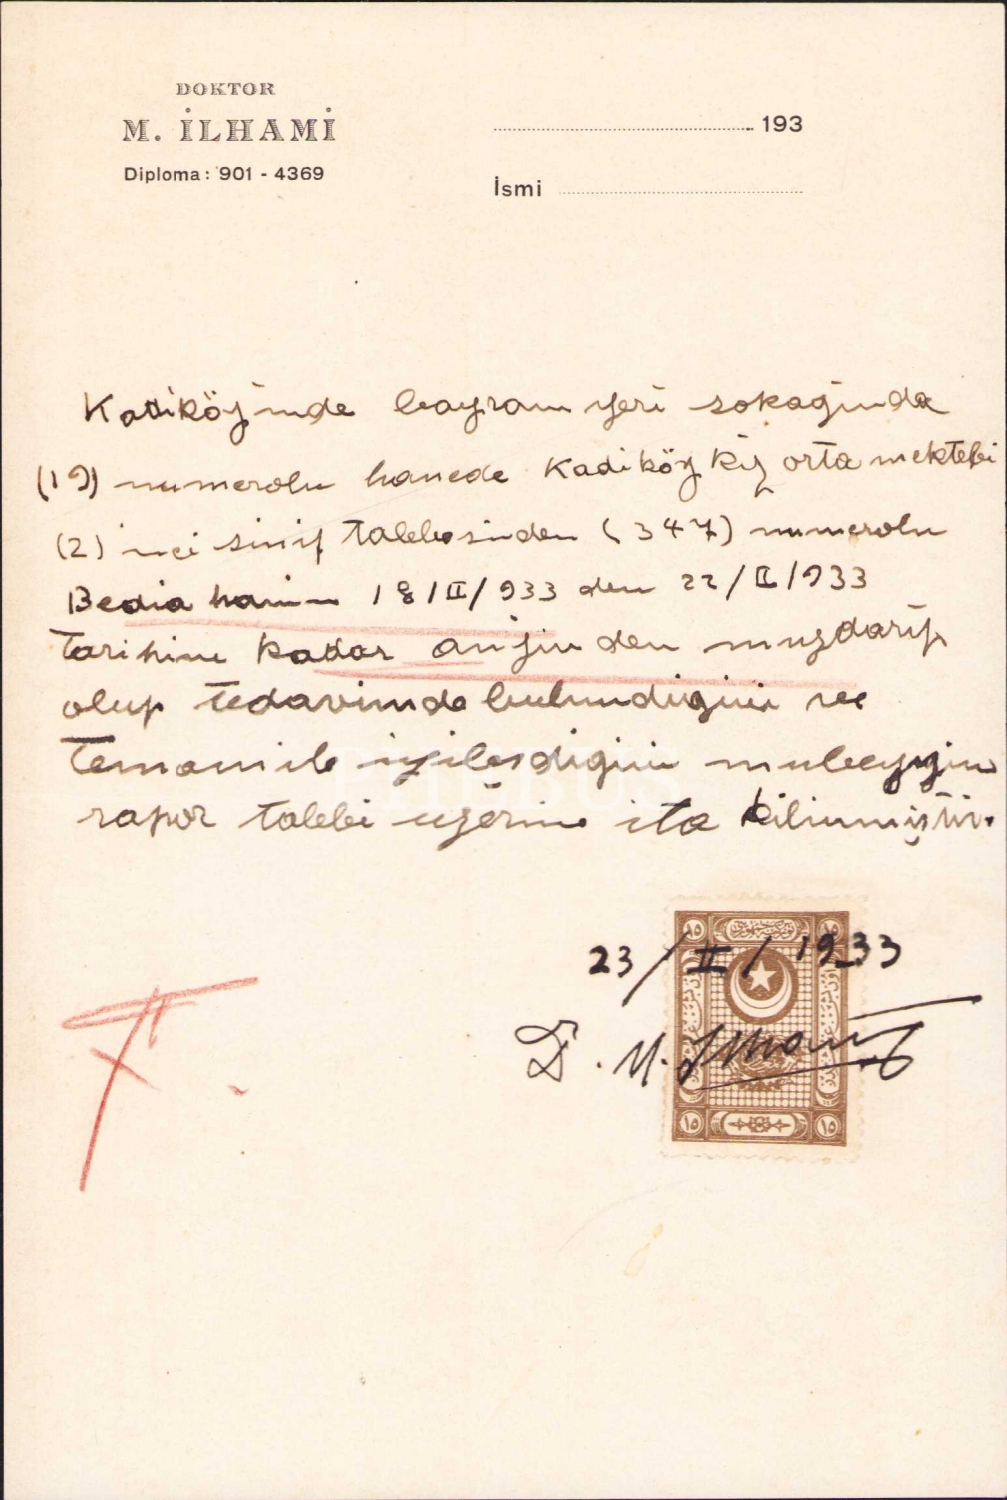 DOKTOR
M. İLHAMİ
Diploma: 901 - 4369
193
İsmi
Kadiköyinde bayram yeri sokağinda
(19) numerolu hanede Kadiköy kiz orta mektebi
(2) inci sinif talebesinden (347) numerolu
Bedia hanim 18/II/933 den 22/II/933
tarihine kadar anjin den muzdarip
olup tedavimde bulundiğini ve
temamile iyileşdiğini mubeyyin
rapor talebi uzerine ita kilinmiştir.
23/II/1933
D. M. Ilhami
١٥ ١٥
١٥ ١٥